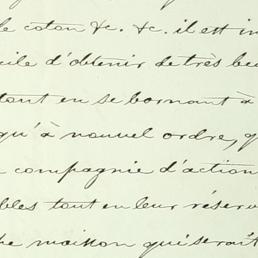 le coton &. &. il est in
cile d'obtenir de très bea
tout en se bornant à
qu'à nouvel ordre, q
compagnie d'action
bles tout en leur réserv
maison qui serait